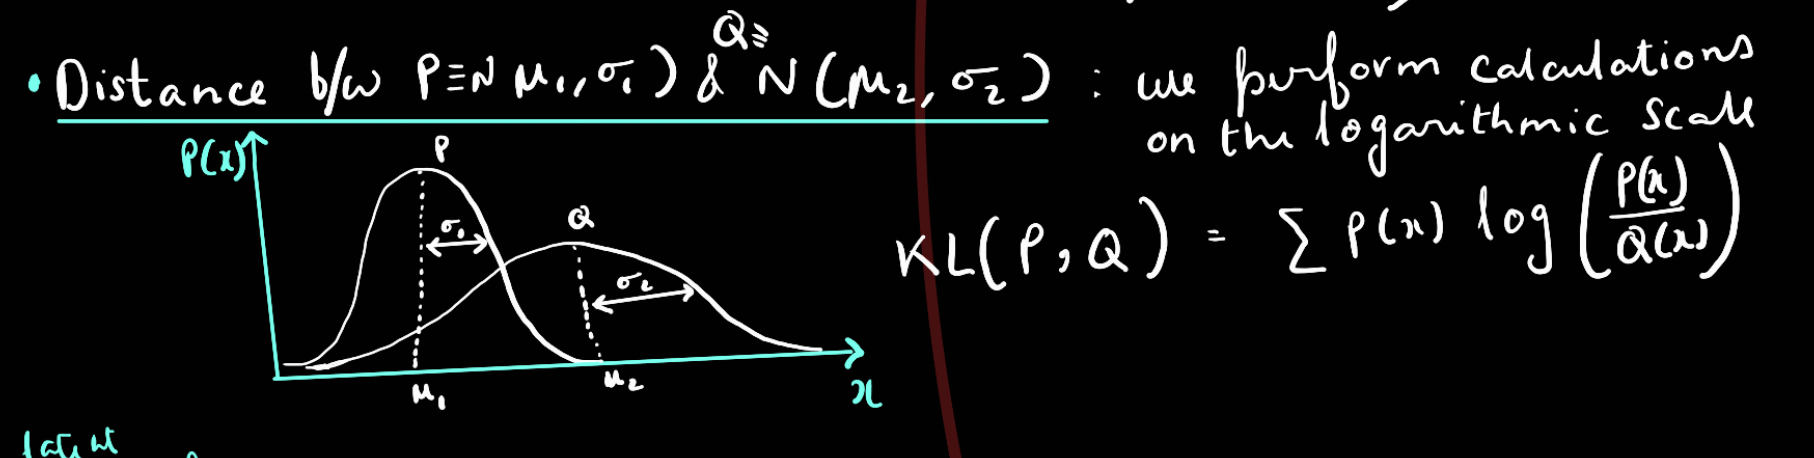 Q ≡
• Distance b/w P ≡ N μ₁, σ₁) & N (μ₂, σ₂) : we perform calculations
on the logarithmic scale
P(x)
P
σ₁
Q
σ₂
μ₁
μ₂
x
KL(P, Q) = ∑ P(x) log (P(x)/Q(x))
latent